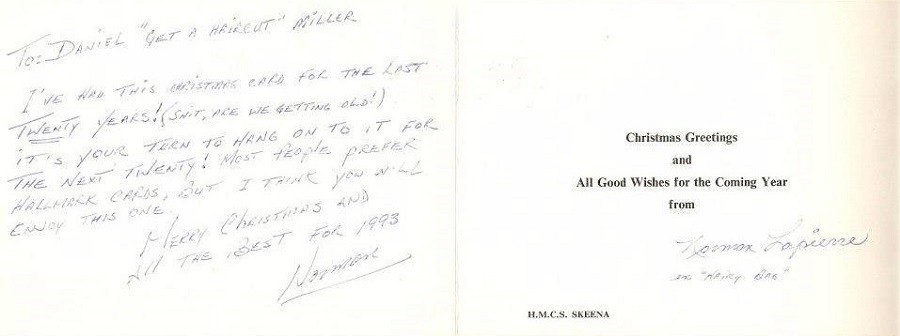 To: DANIEL "GET A HAIRCUT" MILLER
I'VE HAD THIS CHRISTMAS CARD FOR THE LAST
TWENTY YEARS! (SHIT, ARE WE GETTING OLD!)
IT'S YOUR TURN TO HANG ON TO IT FOR
THE NEXT TWENTY! MOST PEOPLE PREFER
HALLMARK CARDS, BUT I THINK YOU WILL
ENJOY THIS ONE.
MERRY CHRISTMAS AND
ALL THE BEST FOR 1993
Norman
Christmas Greetings
and
All Good Wishes for the Coming Year
from
Norman Lapierre
"HAIRY BAG"
H.M.C.S. SKEENA